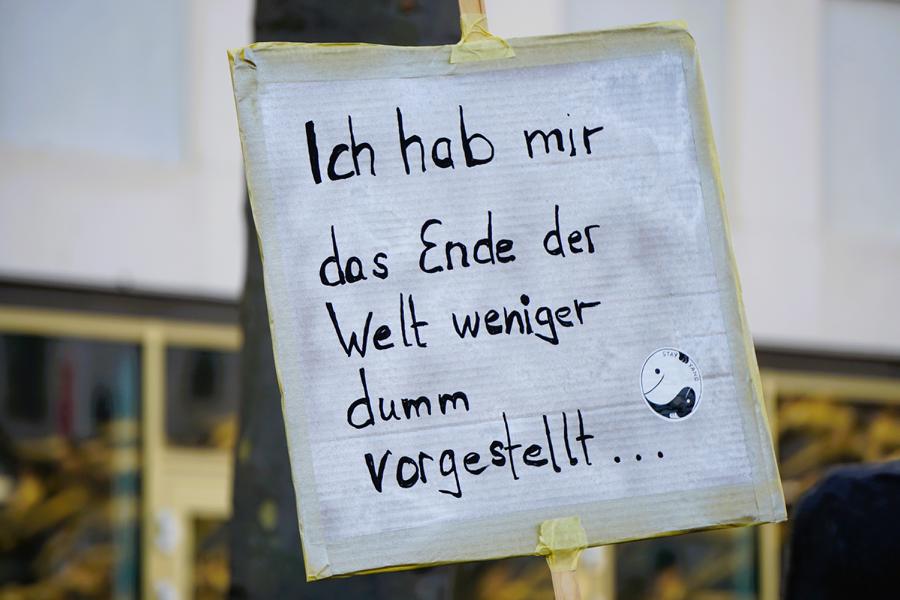 Ich hab mir
das Ende der
Welt weniger
dumm
vorgestellt...
STAY